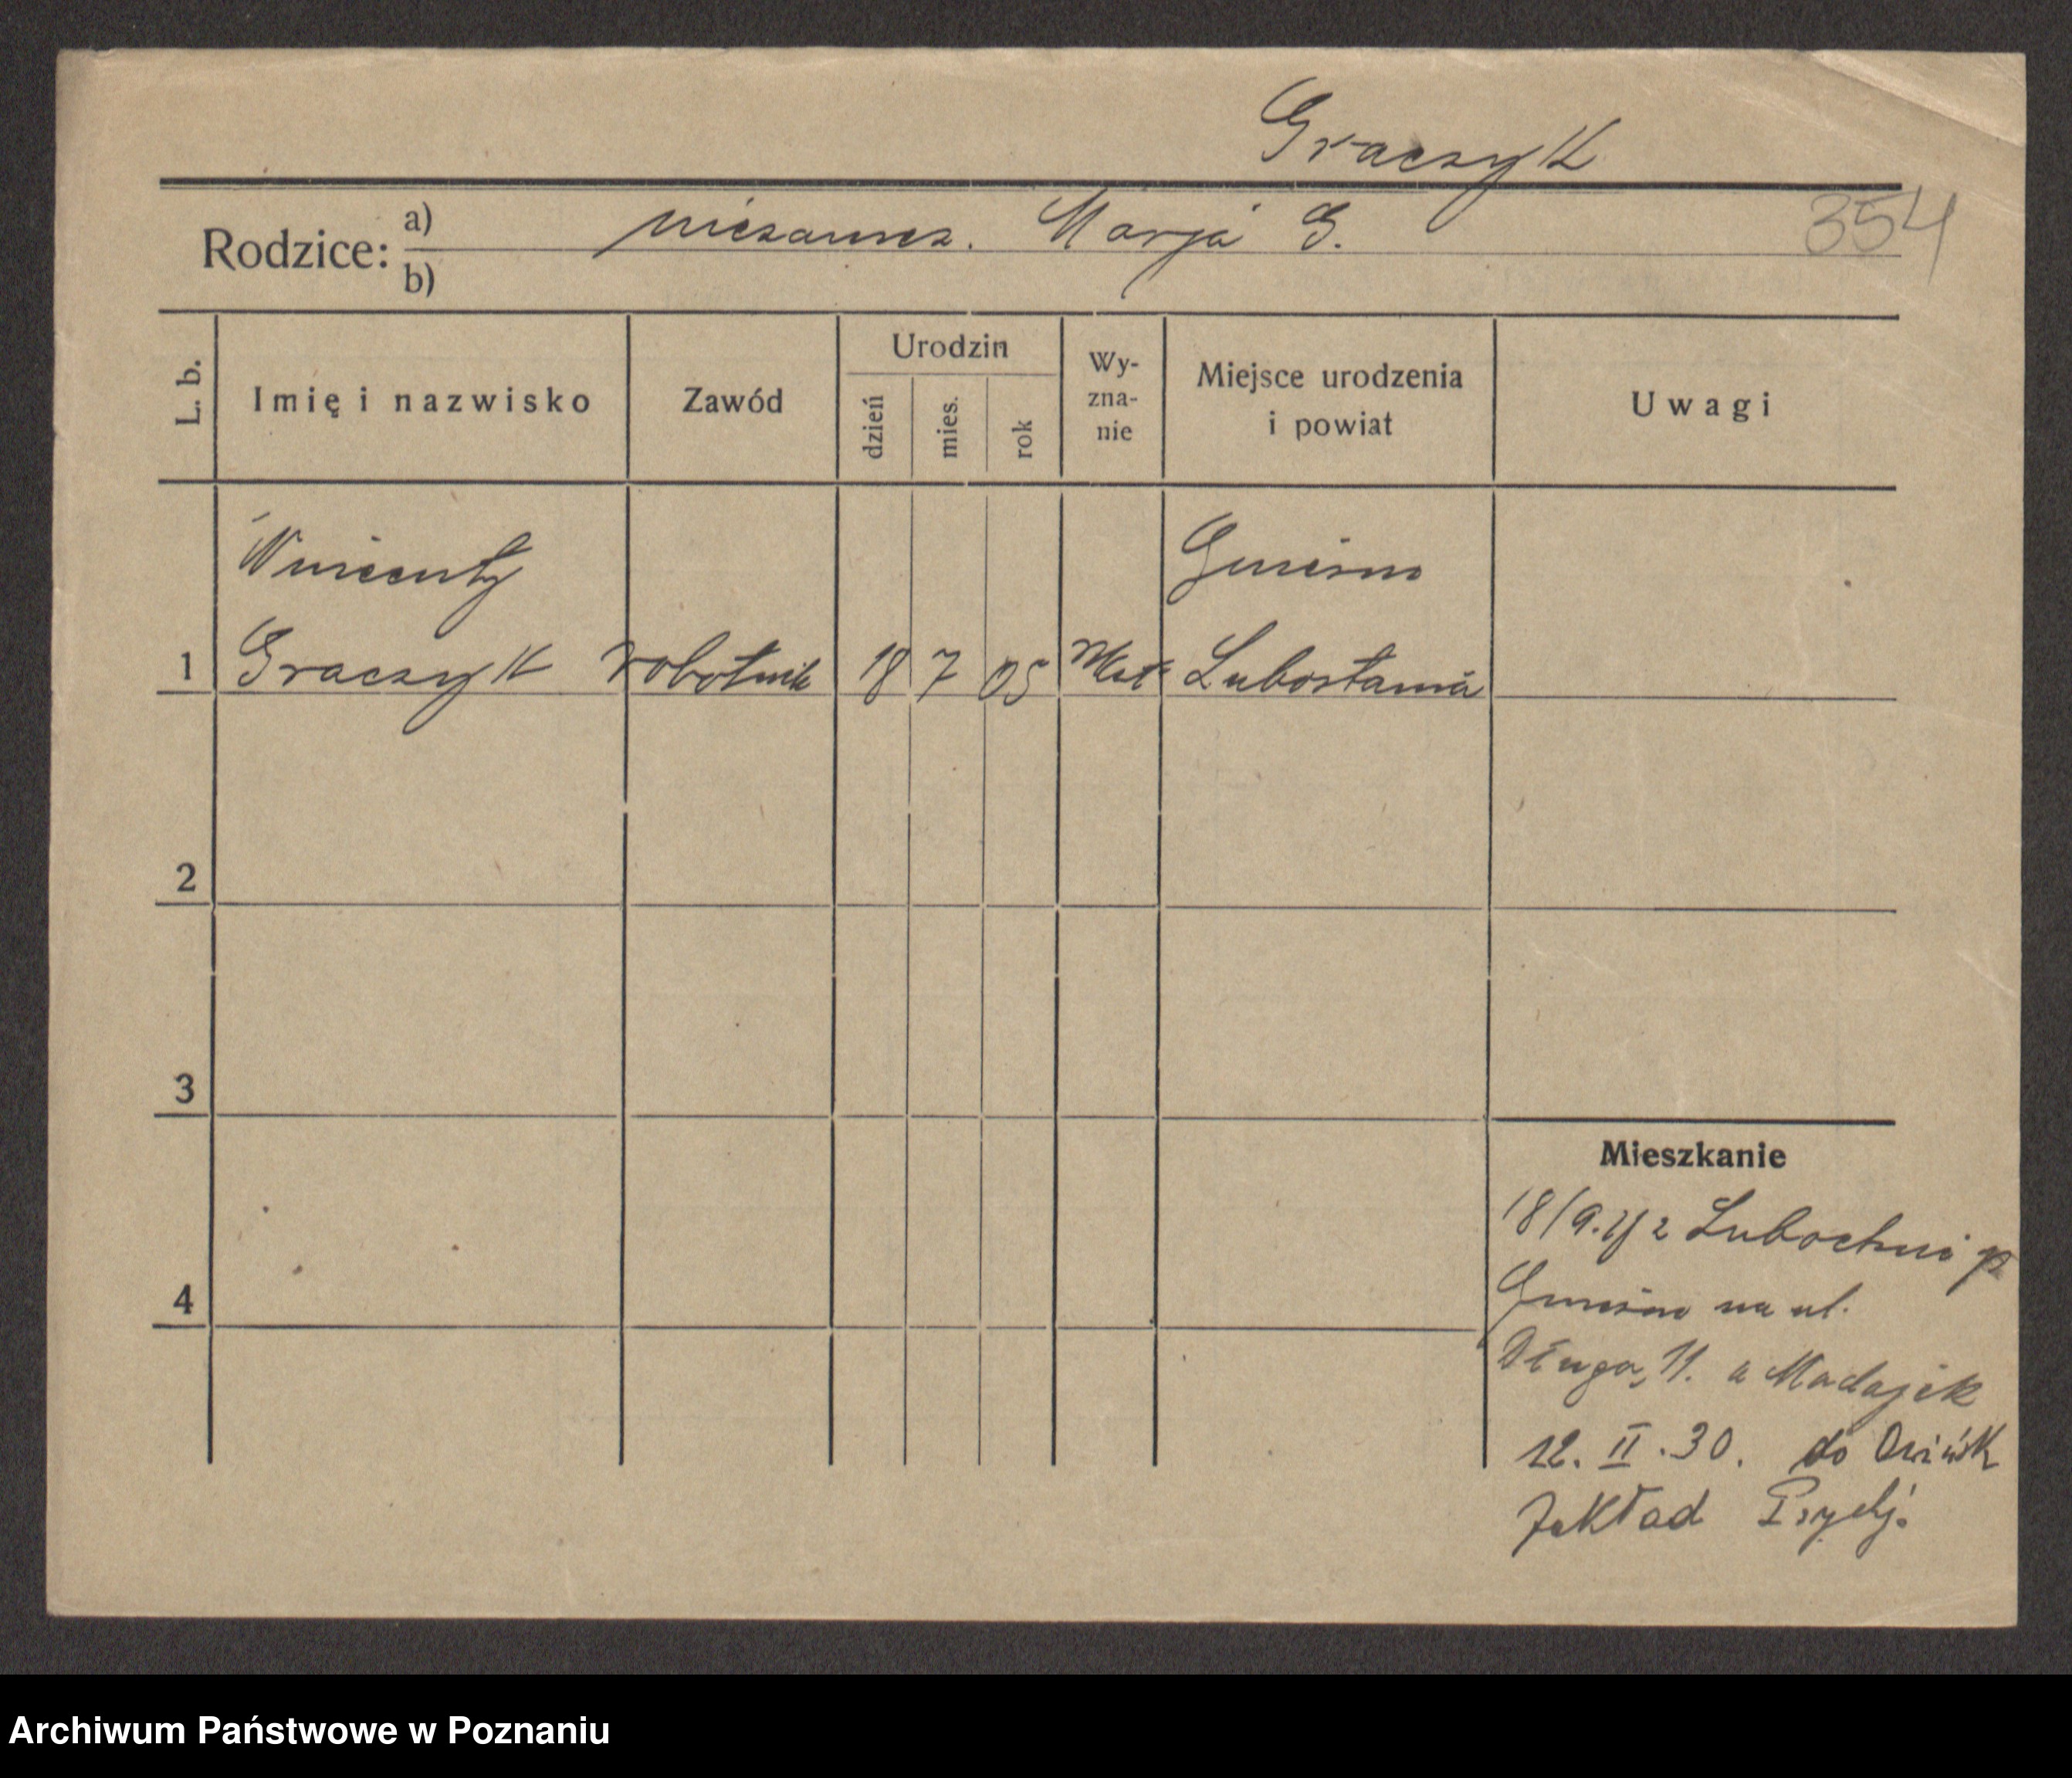 Graczyk
354
Rodzice: a) niezamęz. Marja G.
b)
L. b.
Imię i nazwisko
Zawód
Urodzin
dzień
mies.
rok
Wy-
zna-
nie
Miejsce urodzenia
i powiat
Uwagi
Wincenty
Gniezno
1 Graczyk robotnik 18 7 05 Kat.
2
3
4
Mieszkanie
18/9. z Lubochni p
Gniezno na ul.
Długa, 11. a Madajek
12. II. 30. do Owińsk
Zakład Psychj.
Archiwum Państwowe w Poznaniu